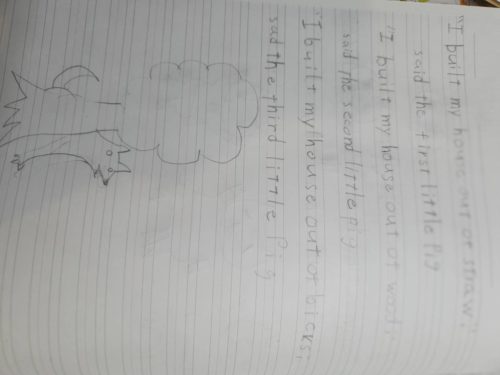 "I built my house out of straw,"
said the first little pig
"I built my house out of wood,
said the second little pig
"I built my house out of bicks,
sad the third little pig